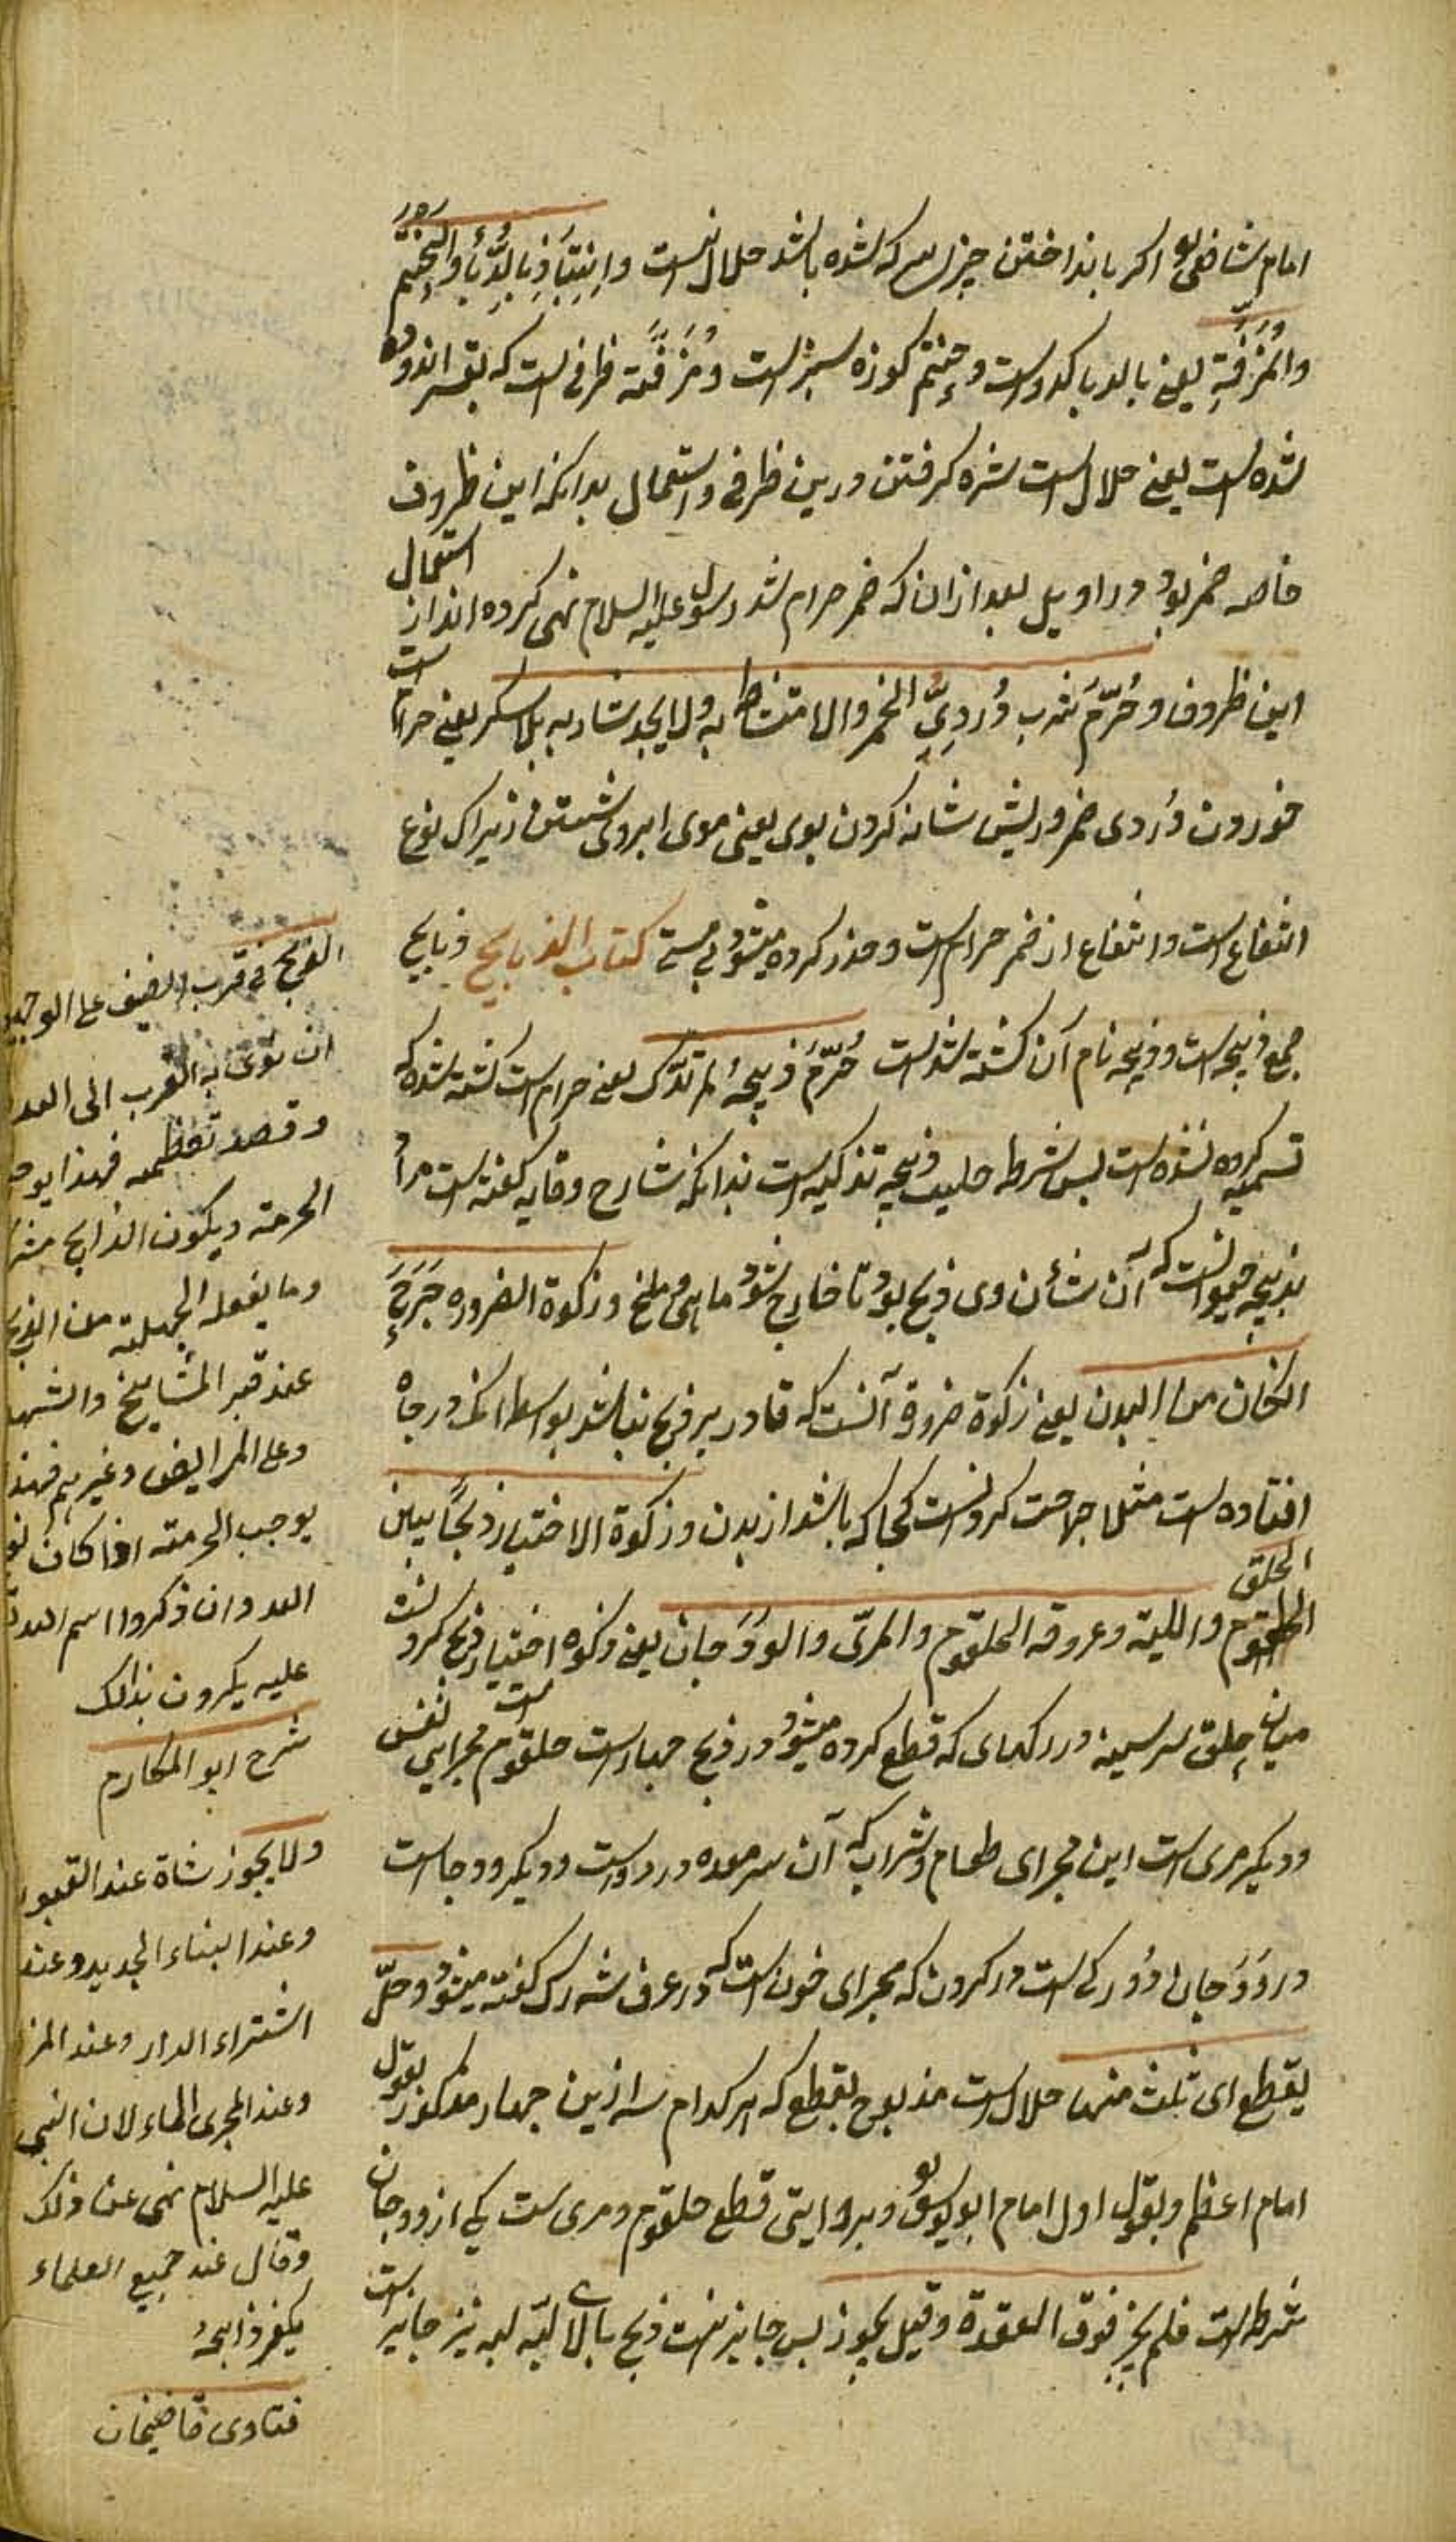 امام شافعی اکر بانداختن چیزی سرکه شده باشد حلال نیست والانتباذ بالدباء والحنتم
والمزفة یعنی بالدبا کدو است وحنتم کوزه سبز است ومزفة ظرفی است که بقیر اندوه
شده است یعنی حلال است شره کرفتن درین ظرفی واستعمال بدانکه این ظروف
خاصه خمر بود در اویل بعد ازان که خمر حرام شد رسول علیه السلام نهی کرده اند از استعمال
این ظروف وحُرّم شرب دُردیّ الخمر والامتشاط به ولا یحد شاربه بلا سکر یعنی حرام است
خوردن دُردی خمر وریش شانه کردن بوی یعنی موی ابروی شستن زیراک نوع
انتفاع است وانتفاع از خمر حرام است وحذر کرده میشود بی مستی کتاب الذبایح ذبایح
جمع ذبیحه است وذبیحه نام آن کشته شد است حُرّم ذبیحةٌ لم تذک یعنی حرام است کشته شده که
تسمیه کرده نشده است پس شرط حلیت ذبیحه تذکیه است بدانکه شارح وقایه کفته است مراد
بذبیحه حیوانست که آن شأن وی ذبح بود تا خارج شود ماهی وملخ وزکوة الضروره جَرَحٍ
الکان من البدن یعنی زکوة ضرورة آنست که قادر بر ذبح نباشد بواسطه انک در چاه
افتاده است مثلا جراحت کردنست کجا که باشد از بدن وزکوة الاختیار ذبحًا بین الحلق
واللبة وعروقه الحلقوم والمرّی والودَجان یعنی ذکوه اختیار ذبح کردنست
میان حلق سرسینه ورکهای که قطع کرده میشود در ذبح چهار است حلقوم مجرای نفس است
ودیکر مری است این مجرای طعام وشراب که آن سرمعده در رو است ودیکر ودجا است
ودوَدَجان دُو رکی است در کردن که مجرای خون است که در عرف شه رک کفته میشود وحلّ
بقطع ای ثلث منها حلال است مذبوح بقطع که هر کدام سه ازین چهار مذکور بقول
امام اعظم وبقول اول امام ابو یوسف وبروایتی قطع حلقوم ومری است یکی از ودجان
شرط است فلم یجز فوق العقدة وقیل یجوز پس جایز نیست ذبح بالای لبّه نیز جایز است
الذبح فی قرب الضیف علی الوجهین
ان نوی به التقرب الی الله
وقصد تعظمه فهذا یوجب
الحرمة ویکون الذابح مشرک
وما یفعله الجهلة من الذبح
عند قبر المشایخ والشهدا
وعلی المرایض وغیرهم فهذا
یوجب الحرمة اذا کان
الله وان ذکروا اسم الله
علیه یکرون بذالک
شرح ابو المکارم
ولا یجوز شاة عند القبور
وعند البناء الجدید وعند
اشتراء الدار وعند
وعند المجری الماء لان النبی
علیه السلام نهی عن ذلک
وقال عند جمیع العلماء
یکفر ذابحهُ
فتاوی قاضیخان